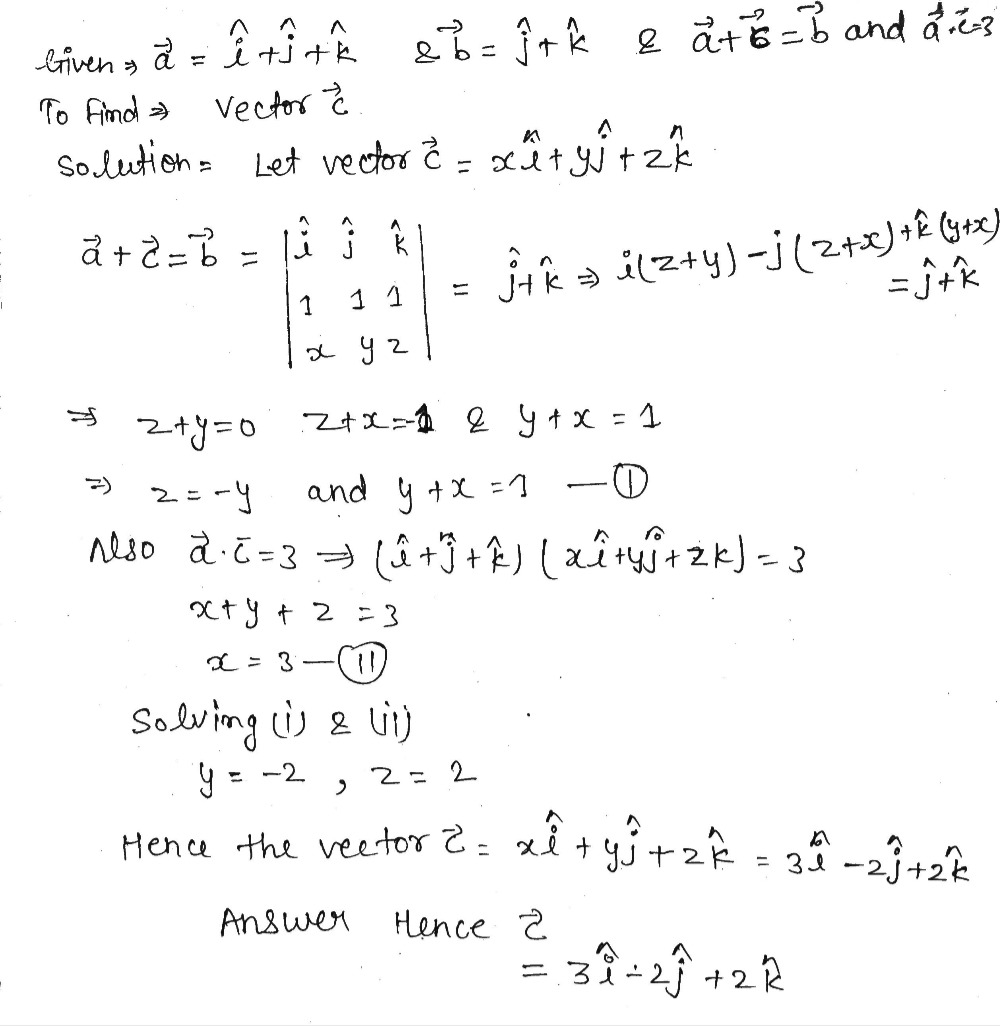 Given ⇒ a⃗ = î + ĵ + k̂ & b⃗ = ĵ + k̂ & a⃗ + c⃗ = b⃗ and a⃗.c⃗=3
To find ⇒ Vector c⃗
Solution = Let vector c⃗ = xî + yĵ + zk̂
a⃗ + c⃗ = b⃗ = |î ĵ k̂| = ĵ + k̂ ⇒ i(z+y) - j(z+x) + k̂(y+x)
|1 1 1| = ĵ + k̂
|x y z|
⇒ z+y=0 z+x=-1 & y+x=1
⇒ z=-y and y+x=1 —(I)
Also a⃗.c̄=3 ⇒ (î+ĵ+k̂)(xî+yĵ+zk)=3
x+y+z=3
x=3—(II)
Solving (i) & (ii)
y=-2, z=2
Hence the veetor c⃗ = xî + yĵ + zk̂ = 3î - 2ĵ + 2k̂
Answer Hence c⃗
= 3î - 2ĵ + 2k̂